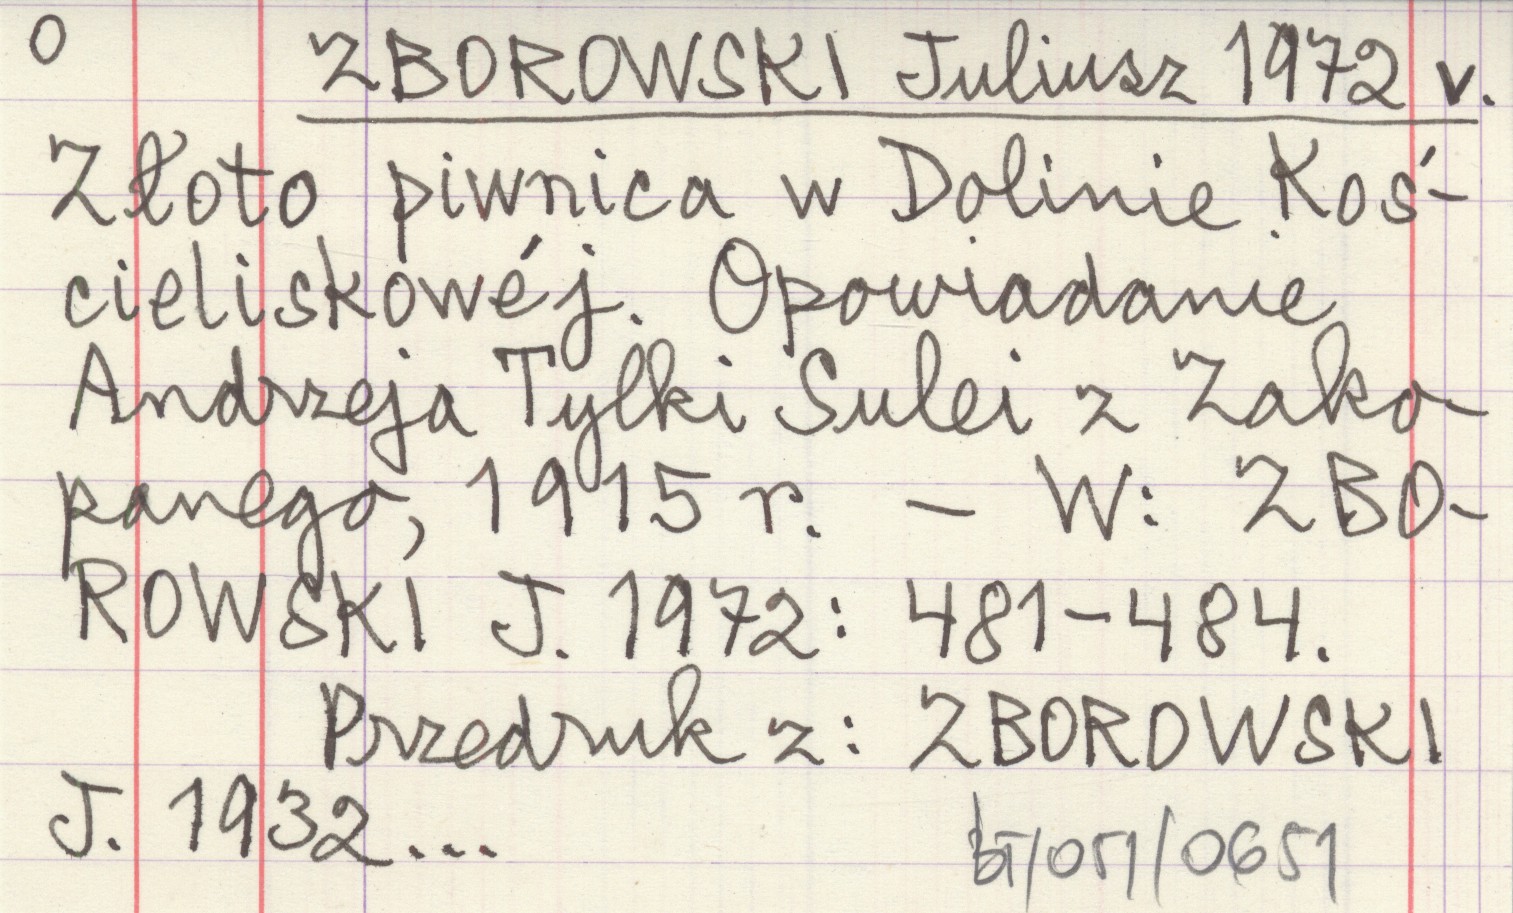 O ZBOROWSKI Juliusz 1972 v.
Złoto piwnica w Dolinie Koś-
cieliskowéj. Opowiadanie
Andrzeja Tylki Sulei z Zako-
panego, 1915 r. – W: ZBO-
ROWSKI J. 1972: 481–484.
Przedruk z: ZBOROWSKI
J. 1932...
bT/051/0651